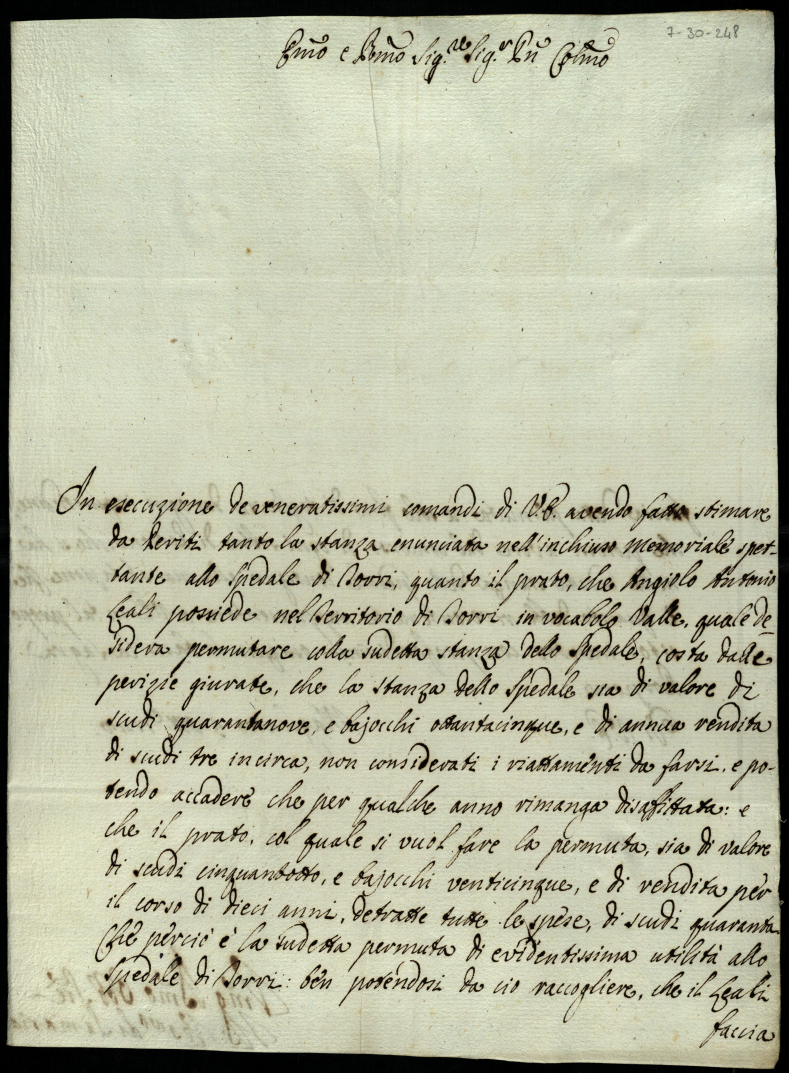 7-30-248
Emo e Rmo Sig.re Sig.r Pñ Colmo
In esecuzione de veneratissimi comandi di VE. avendo fatto stimare
da Periti tanto la stanza enunciata nell'inchiuso Memoriale spet-
tante allo Spedale di Torri, quanto il prato, che Angiolo Antonio
Leali possiede nel Territorio di Torri in vocabolo Valle, quale de-
sidera permutare colla sudetta stanza dello Spedale, costa dalle
perizie giurate, che la stanza dello Spedale sia di valore di
scudi quarantanove, e bajocchi ottantacinque, e di annua rendita
di scudi tre incirca, non considerati i riattamenti da farsi, e po-
tendo accadere che per qualche anno rimanga disaffittata: e
che il prato, col quale si vuol fare la permuta, sia di valore
di scudi cinquantotto, e bajocchi venticinque, e di rendita per
il corso di dieci anni, detratte tutte le spese, di scudi quaranta
Che perciò è la sudetta permuta di evidentissima utilità allo
Spedale di Torri: ben potendosi da ciò raccogliere, che il Leali
faccia